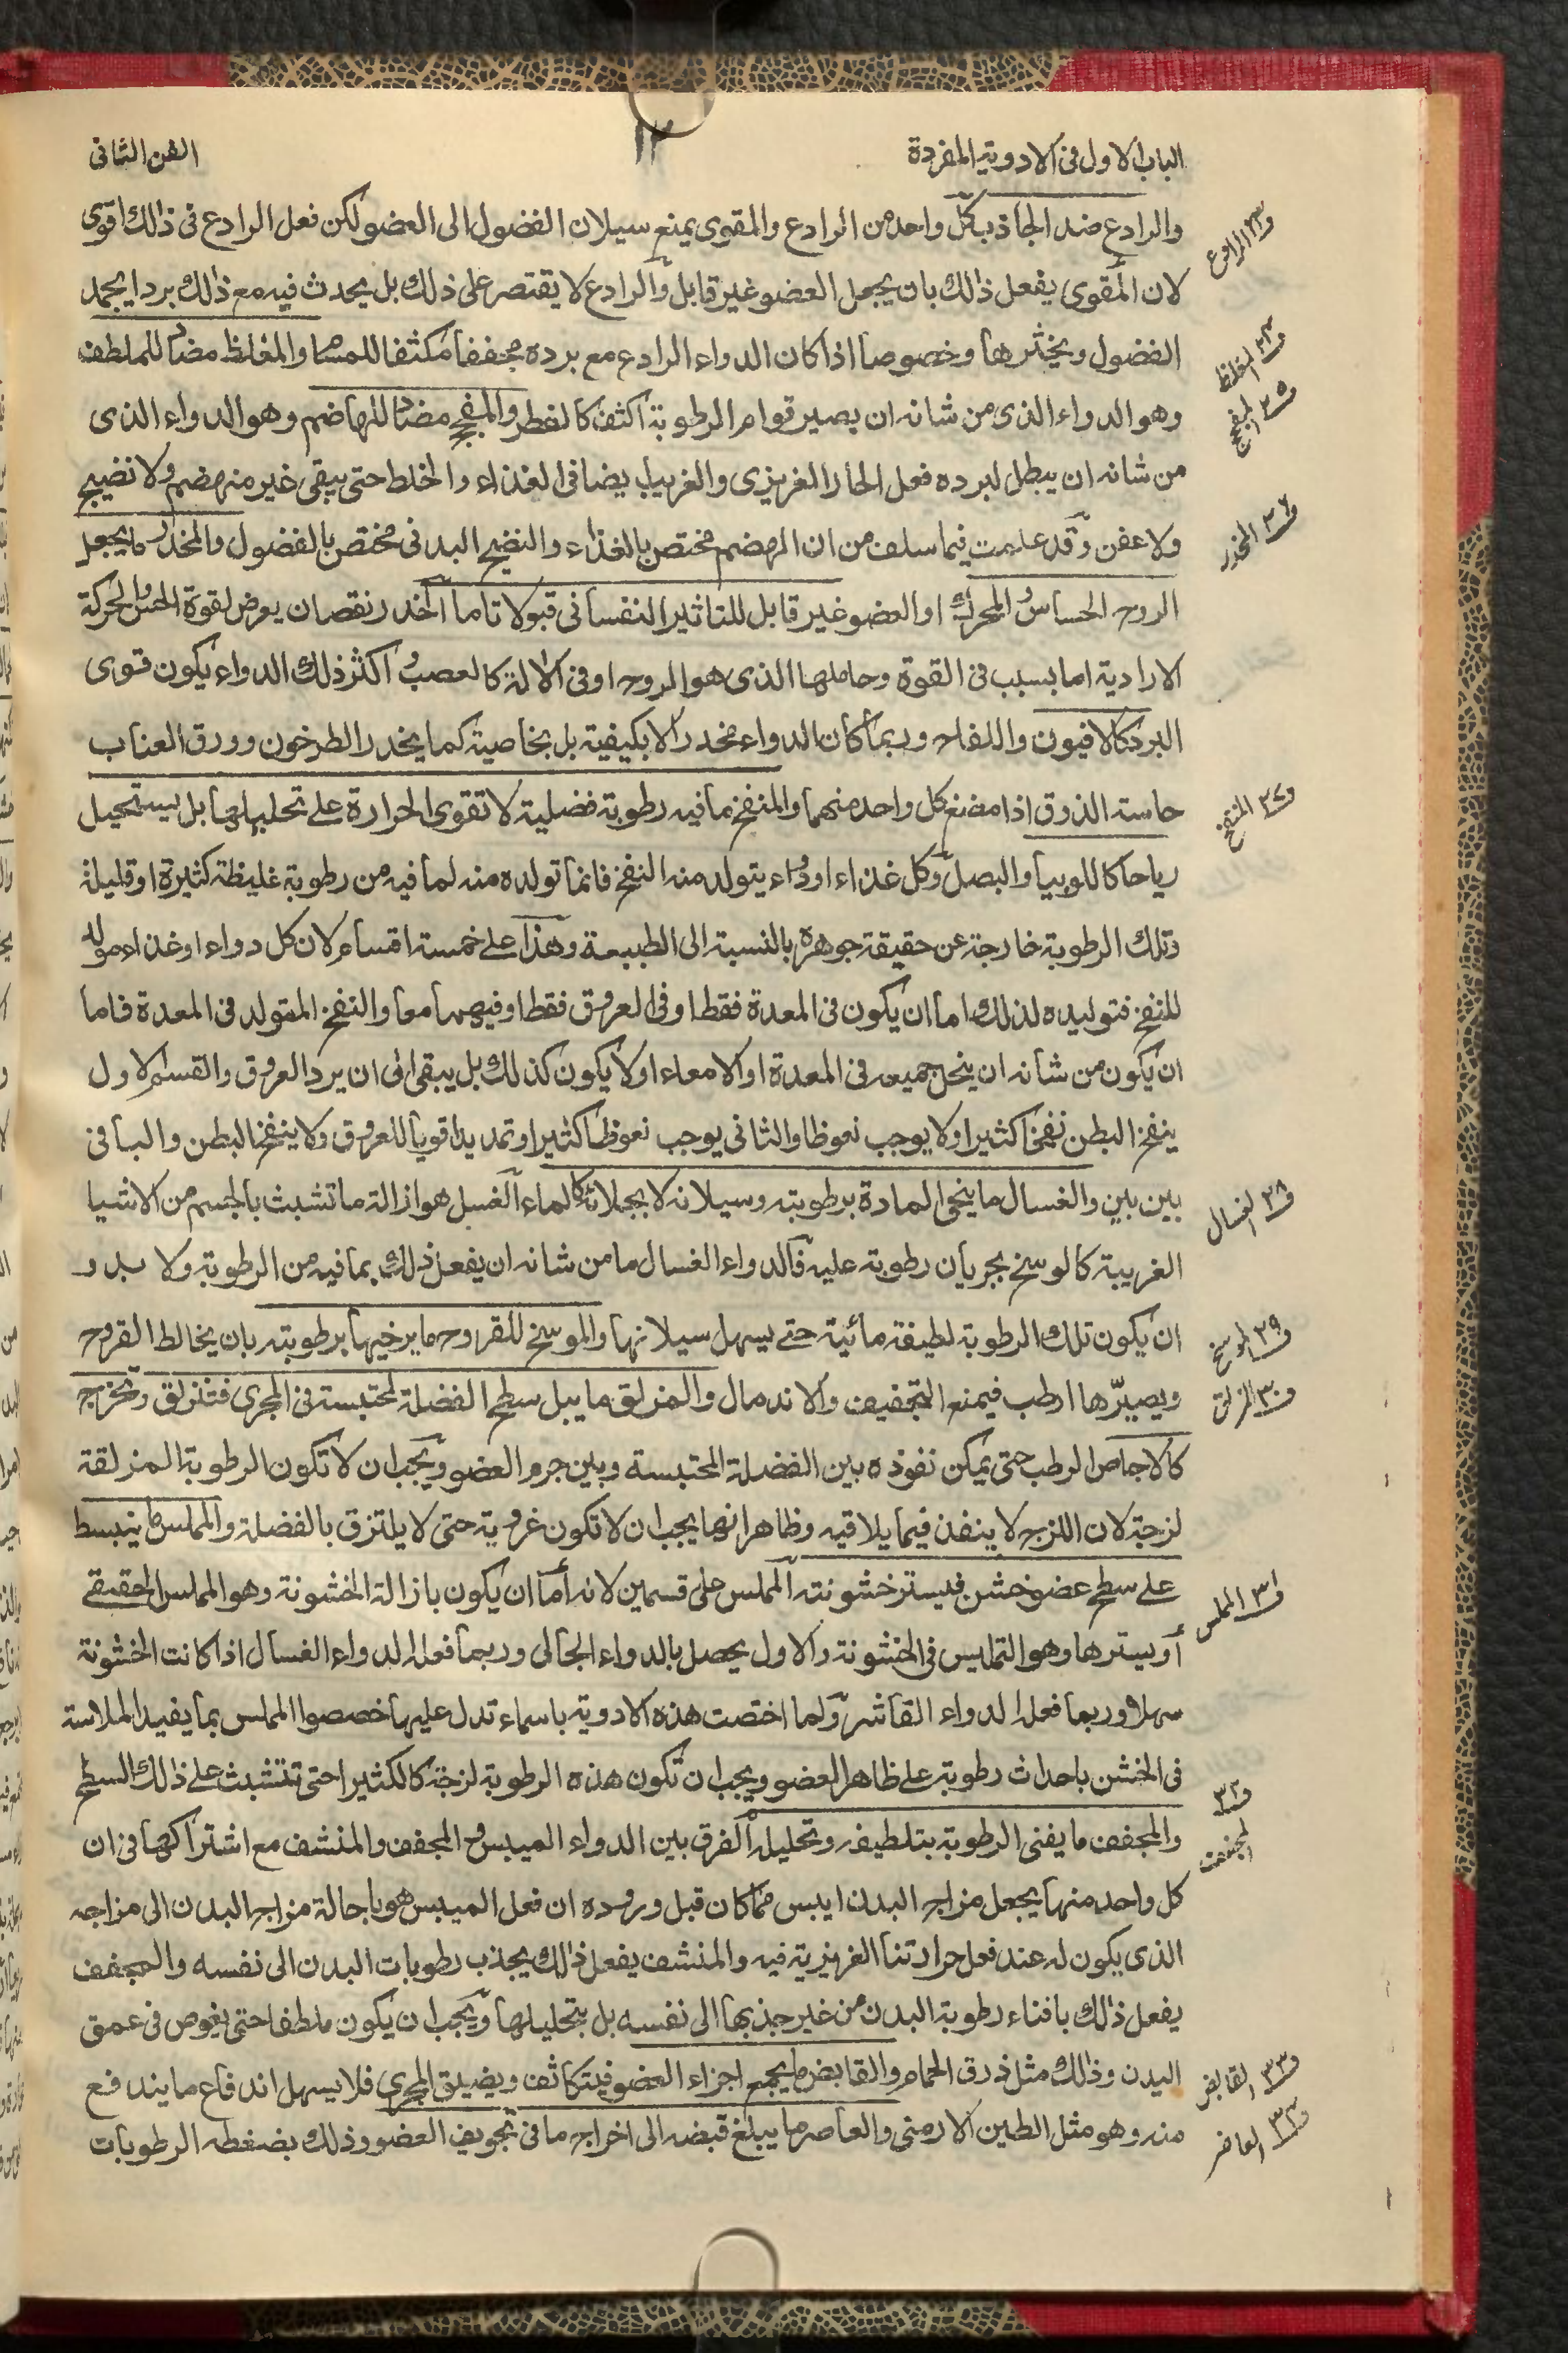 الباب الاول فى الادوية المفردة
١٢
الفن الثانى
والرادع ضد الجاذب كل واحد من الرادع والمقوى يمنع سيلان الفضول الى العضو لكن فعل الرادع فى ذلك اقوى
لان المقوى يفعل ذلك بان يجعل العضو غير قابل والرادع لا يقتصر على ذلك بل يحدث فيه مع ذلك بردا يجمد
الفضول ويخثرها وخصوصا اذا كان الدواء الرادع مع برده مجففا مكثفا للمسام والمغلظ مضاد للملطف
وهو الدواء الذى من شانه ان يصير قوام الرطوبة اكثف كالفطر والمفجج مضاد للهاضم وهو الدواء الذى
من شانه ان يبطل لبرده فعل الحار الغريزى والغريب ايضا فى الغذاء والخلط حتى يبقى غير منهضم ولا نضيج
ولا عفن وقد علمت فيما سلف من ان الهضم مختص بالغذاء والنضج البدنى مختص بالفضول والمخدر ما يجعل
الروح الحساس المحرك او العضو غير قابل للتاثير النفسانى قبولا تاما الخدر نقصان يعرض لقوة الحس والحركة
الارادية اما بسبب فى القوة وحاملها الذى هو الروح او فى الالة كالعصب اكثر ذلك الدواء يكون قوى
البرد كالافيون واللفاح وربما كان الدواء مخدرا لا بكيفية بل بخاصية كما يخدر الطرخون وورق العناب
حاسة الذوق اذا مضغ كل واحد منهما والمنفخ ما فيه رطوبة فضلية لا تقوى الحرارة على تحليلها بل يستحيل
رياحا كاللوبيا والبصل وكل غذاء او دواء يتولد منه النفخ فانما تولده منه لما فيه من رطوبة غليظة كثيرة او قليلة
وتلك الرطوبة خارجة عن حقيقة جوهره بالنسبة الى الطبيعة وهذا على خمسة اقسام لان كل دواء او غذاء مولد
للنفخ فتوليده لذلك اما ان يكون فى المعدة فقط او فى العروق فقط او فيهما معا والنفخ المتولد فى المعدة فاما
ان يكون من شانه ان ينحل جميعه فى المعدة او الامعاء او لا يكون كذلك بل يبقى الى ان يرد العروق والقسم الاول
ينفخ البطن نفخا كثيرا ولا يوجب نعوظا والثانى يوجب نعوظا كثيرا وتمديدا قويا للعروق ولا ينفخ البطن والباقى
بين بين والغسال ما ينحى المادة برطوبته وسيلانه لا بجلائه كالماء الغسل هو ازالة ما تشبث بالجسم من الاشيا
الغريبة كالوسخ بجريان رطوبة عليه فالدواء الغسال ما من شانه ان يفعل ذلك بما فيه من الرطوبة ولا بد و
ان يكون تلك الرطوبة لطيفة مائية حتى يسهل سيلانها والموسخ للقروح ما يرخيها برطوبته بان يخالط القروح
ويصيرها ارطب فيمنع التجفيف والاندمال والمزلق ما يبل سطح الفضلة المحتبسة فى المجرى فتنزلق وتخرج
كالاجاص الرطب حتى يمكن نفوذه بين الفضلة المحتبسة وبين جرم العضو ويجب ان لا تكون الرطوبة المزلقة
لزجة لان اللزج لا ينفذ فيما يلاقيه وظاهر انها يجب ان لا تكون غروية حتى لا يلتزق بالفضلة والمملس ما ينبسط
على سطح عضو خشن فيستر خشونته المملس على قسمين لانه اما ان يكون بازالة الخشونة وهو المملس الحقيقى
أو يسترها وهو التمليس فى الخشونة والاول يحصل بالدواء الجالى وربما فعله الدواء الغسال اذا كانت الخشونة
سهلا وربما فعله الدواء القاشر ولما اختصت هذه الادوية باسماء تدل عليها خصصوا المملس بما يفيد الملاسة
فى الخشن باحداث رطوبة على ظاهر العضو ويجب ان تكون هذه الرطوبة لزجة كالكثيرا حتى تتشبث على ذلك السطح
والمجفف ما يفنى الرطوبة بتلطيفه وتحليله الفرق بين الدواء الميبس و المجفف والمنشف مع اشتراكها فى ان
كل واحد منها يجعل مزاج البدن ايبس مما كان قبل وروده ان فعل الميبس هو باحالة مزاج البدن الى مزاجه
الذى يكون له عند فعل حرارتنا الغريزية فيه والمنشف يفعل ذلك بجذب رطوبات البدن الى نفسه والمجفف
يفعل ذلك بافناء رطوبة البدن من غير جذبها الى نفسه بل بتحليلها ويجب ان يكون ملطفا حتى يغوص فى عمق
البدن وذلك مثل ذرق الحمام والقابض ما يجمع اجزاء العضو فيتكاثف ويضيق المجرى فلا يسهل اندفاع ما يندفع
منه وهو مثل الطين الارمنى والعاصر ما يبلغ قبضه الى اخراج ما فى تجويف العضو وذلك بضغطه الرطوبات
الرادع
المغلظ
٢٥ المفجج
٢٦ المخدر
٢٧ المنفخ
٢٨ الغسال
٢٩ الموسخ
٣٠ المزلق
٣١ المملس
٣٢
المجفف
٣٣ القابض
٣٤ العاصر